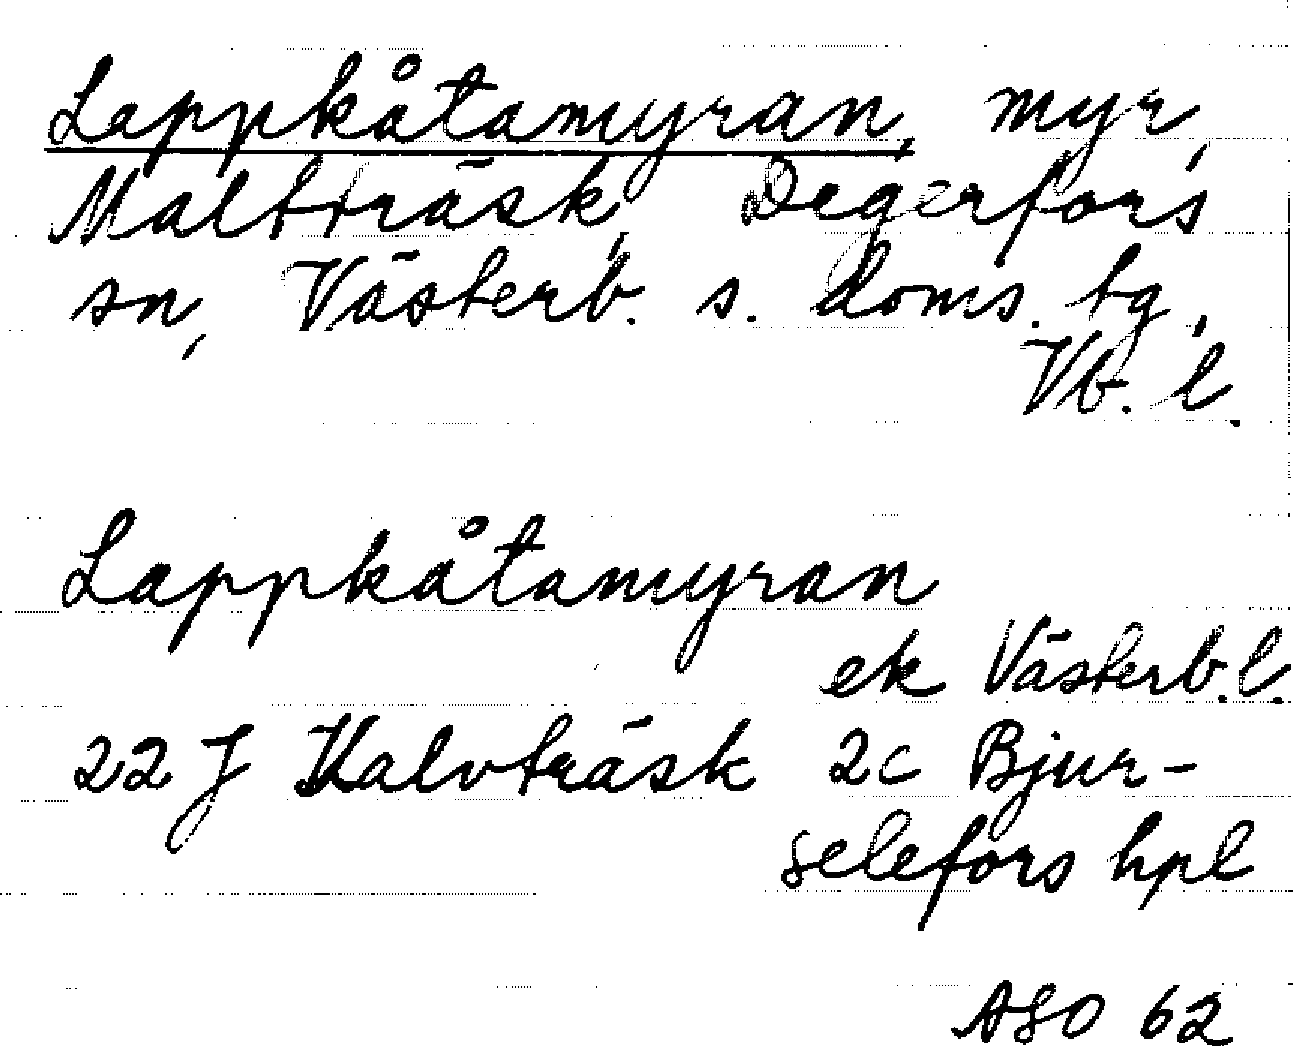 Lappkåtamyran, myr,
Maltträsk, Degerfors
sn, Västerb. s. doms. tg,
Vb. l.
Lappkåtamyran
ek Västerb. l.
22 J Kalvträsk 2c Bjur-
selefors hpl
ASO 62